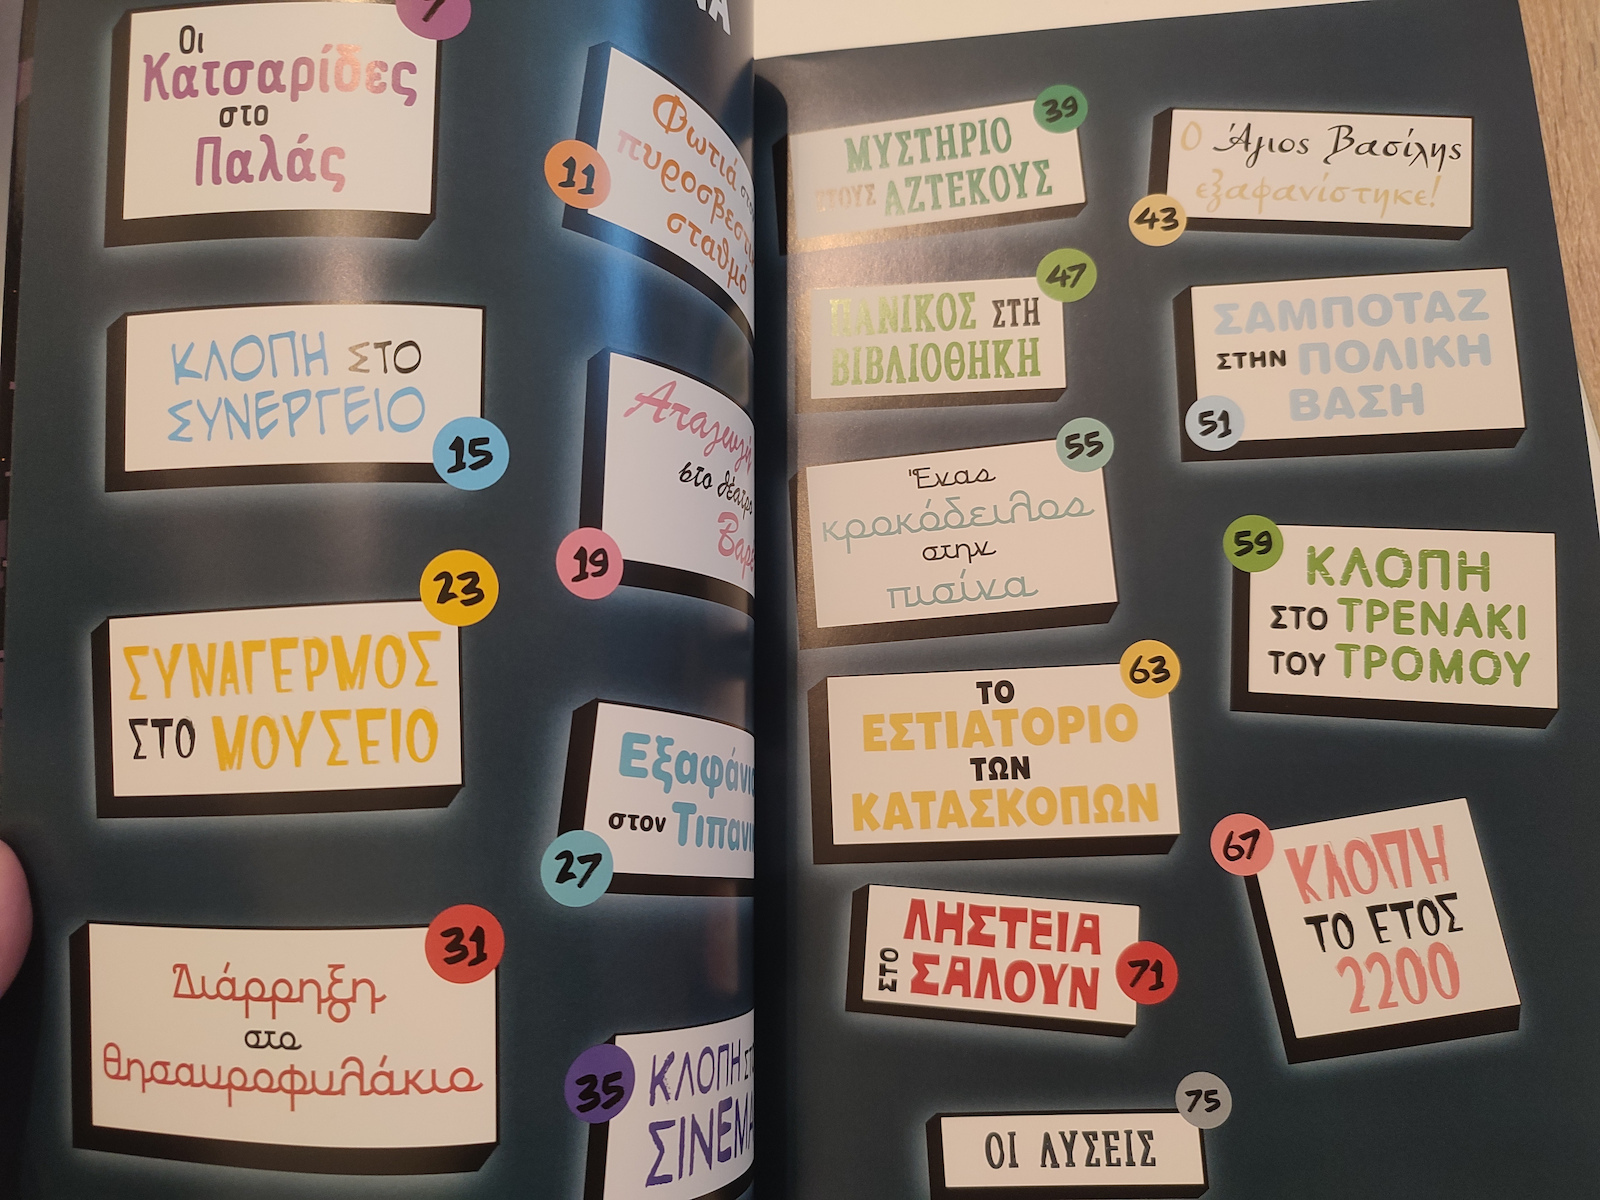 7
Οι
Κατσαρίδες
στο
Παλάς
11
Φωτιά
σταθμό
ΚΛΟΠΗ ΣΤΟ
ΣΥΝΕΡΓΕΙΟ
15
στο θέατρο
19
23
ΣΥΝΑΓΕΡΜΟΣ
ΣΤΟ ΜΟΥΣΕΙΟ
στον
27
31
Διάρρηξη
στο
θησαυροφυλάκιο
35
ΚΛΟΠΗ
39
ΜΥΣΤΗΡΙΟ
ΣΤΟΥΣ ΑΖΤΕΚΟΥΣ
Ο Άγιος Βασίλης
εξαφανίστηκε!
43
47
ΠΑΝΙΚΟΣ ΣΤΗ
ΒΙΒΛΙΟΘΗΚΗ
ΣΑΜΠΟΤΑΖ
ΣΤΗΝ ΠΟΛΙΚΗ
ΒΑΣΗ
51
55
Ένας
κροκόδειλος
στην
πισίνα
59
ΚΛΟΠΗ
ΣΤΟ ΤΡΕΝΑΚΙ
ΤΟΥ ΤΡΟΜΟΥ
63
ΤΟ
ΕΣΤΙΑΤΟΡΙΟ
ΤΩΝ
ΚΑΤΑΣΚΟΠΩΝ
67
ΚΛΟΠΗ
ΤΟ ΕΤΟΣ
2200
ΛΗΣΤΕΙΑ
ΣΤΟ ΣΑΛΟΥΝ
71
75
ΟΙ ΛΥΣΕΙΣ